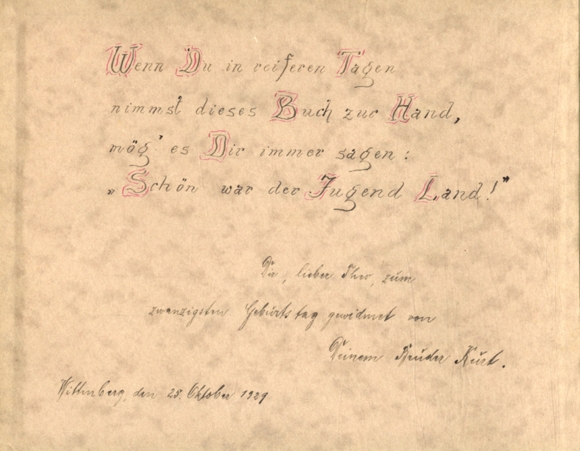 Wenn Du in reiferen Tagen
nimmst dieses Buch zur Hand,
mög' es Dir immer sagen:
„Schön war der Jugend Land!"
Dir, lieber Theo, zum
zwanzigsten Geburtstag gewidmet von
Deinem Bruder Kurt.
Wittenberg, den 28. Oktober 1929